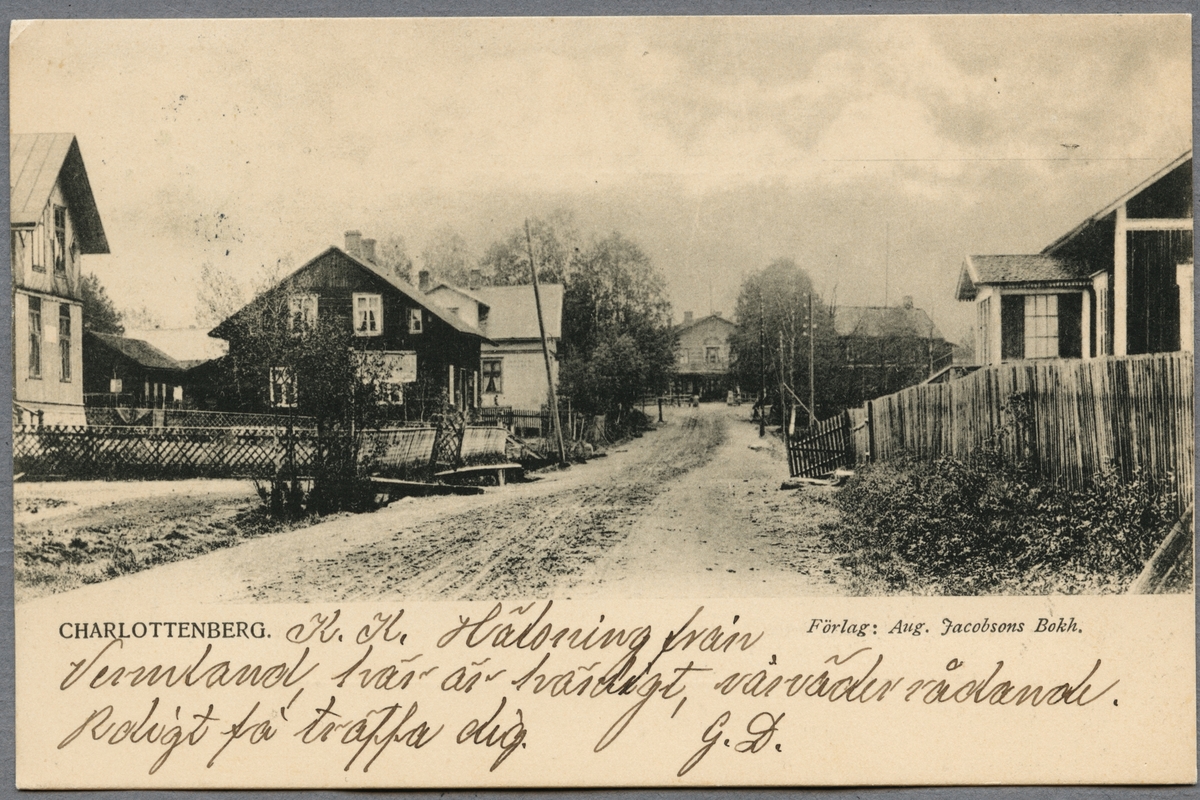 CHARLOTTENBERG. K. K. Hälsning från
Förlag: Aug. Jacobsons Bokh.
Vermland, här är härligt, vårväder rådande.
Roligt få träffa dig. G. D.